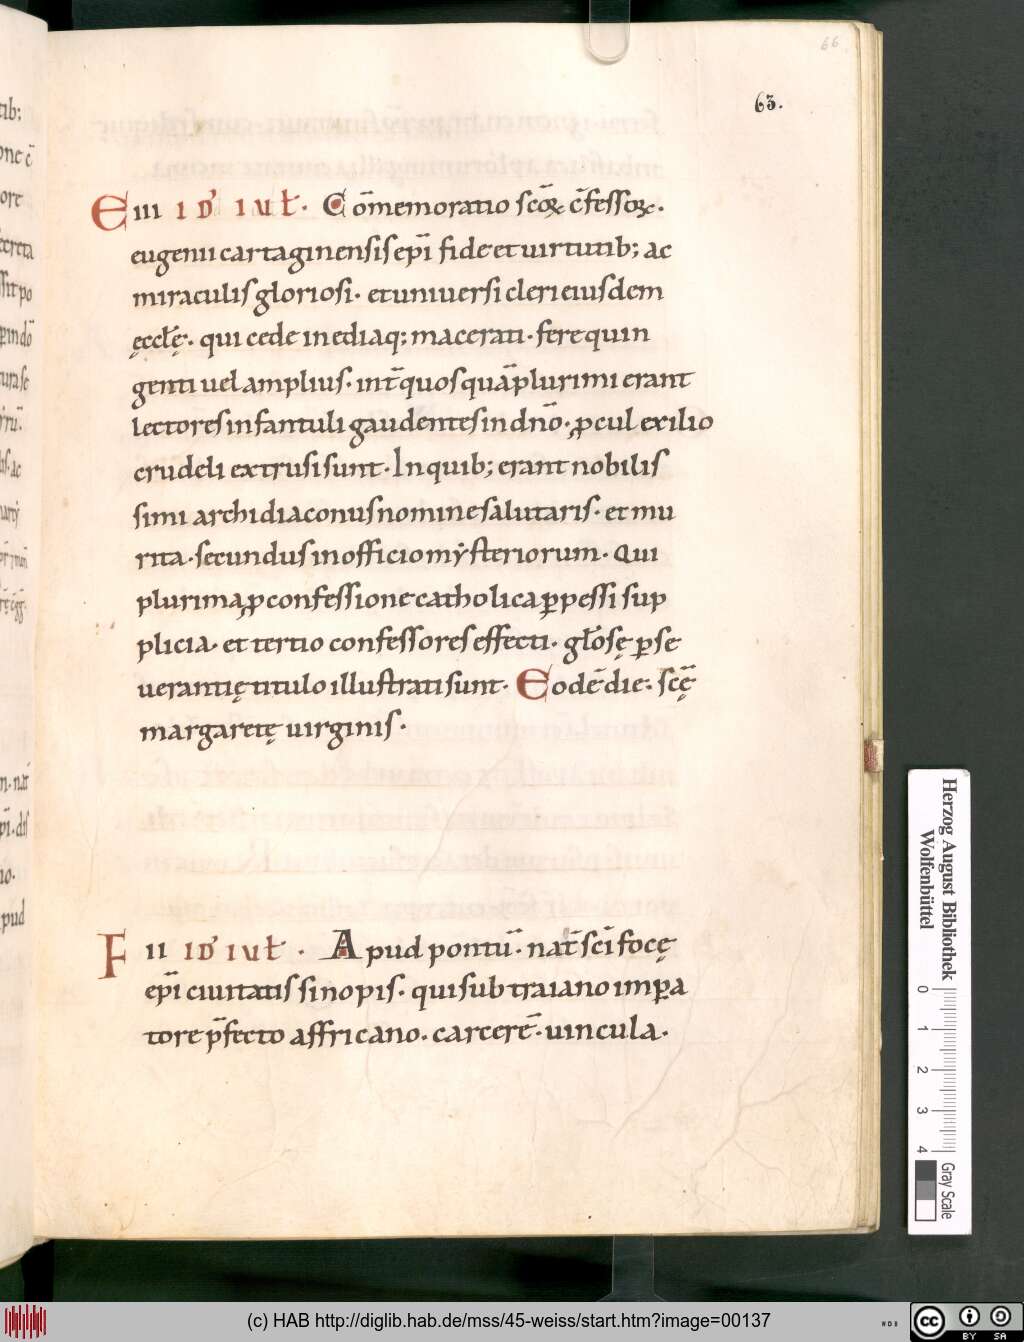 66
63.
E iii id' iul̄. Com̄emoratio scōꝝ c̄fessoꝝ.
eugenii cartaginensis ep̄i fide et uirtutib; ac
miraculis gloriosi. et uniuersi cleri eiusdem
ęccl̄ę. qui cede inediaq; macerati. fere quin
genti uel amplius. int̄ quos quā plurimi erant
lectores infantuli gaudentes in dn̄o. ꝓcul exilio
crudeli extrusi sunt. In quib; erant nobilis
simi archidiaconus nomine salutaris. et mu
rita. secundus in officio mẏsteriorum. Qui
plurima ꝓ confessione catholica ꝑpessi sup
plicia. et tertio confessores effecti. gl̄osę ꝑse
uerantię titulo illustrati sunt. Eodē die. sc̄ę
margaretę uirginis.
F ii id' iul̄. Apud pontū. nat̄ sc̄i focę
ep̄i ciuitatis sinopis. qui sub traiano imꝑa
tore p̄fecto affricano. carcerē. uincula.
Herzog August Bibliothek
Wolfenbüttel
0 1 2 3 4
Gray Scale
(c) HAB http://diglib.hab.de/mss/45-weiss/start.htm?image=00137
cc BY SA